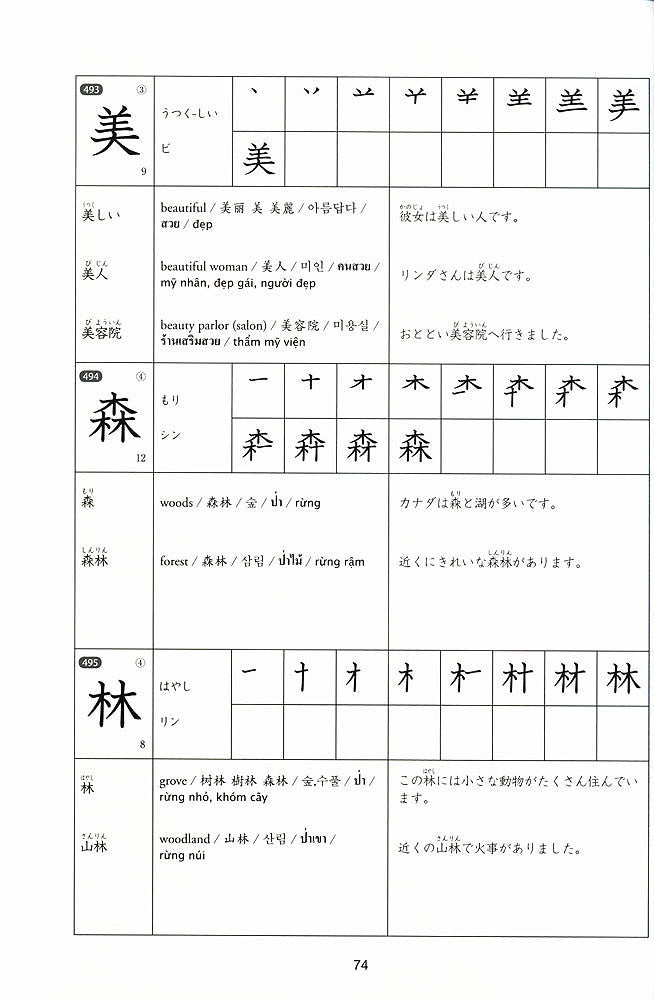 493 ③
美
9
うつく-しい
ビ
美
美しい
うつく
beautiful / 美丽 美 美麗 / 아름답다 /
สวย / đẹp
彼女は美しい人です。
かのじょ うつく
美人
びじん
beautiful woman / 美人 / 미인 / คนสวย /
mỹ nhân, đẹp gái, người đẹp
リンダさんは美人です。
びじん
美容院
びよういん
beauty parlor (salon) / 美容院 / 미용실 /
ร้านเสริมสวย / thẩm mỹ viện
おととい美容院へ行きました。
びよういん
494 ④
森
12
もり
シン
一 十 才 木
森
森
もり
woods / 森林 / 숲 / ป่า / rừng
カナダは森と湖が多いです。
もり
森林
しんりん
forest / 森林 / 삼림 / ป่าไม้ / rừng rậm
近くにきれいな森林があります。
しんりん
495 ④
林
8
はやし
リン
林
林
はやし
grove / 树林 樹林 森林 / 숲,수풀 / ป่า /
rừng nhỏ, khóm cây
この林には小さな動物がたくさん住んでい
ます。
はやし
山林
さんりん
woodland / 山林 / 산림 / ป่าเขา /
rừng núi
近くの山林で火事がありました。
さんりん
74